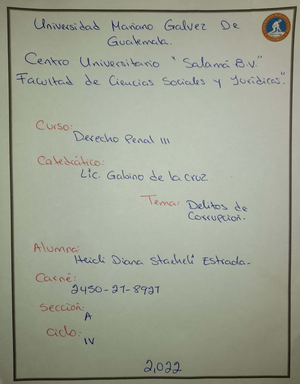 Universidad Mariano Galvez De
Guatemala.
Centro Universitario "Salamá B.V."
Facultad de Ciencias Sociales y Jurídicas".
Curso:
Derecho Penal III
Catedrático:
Lic. Gabino de la Cruz
Tema: Delitos de
Corrupción.
Alumna:
Heidi Diana Stacheli Estrada.
Carné:
2450-21-8927
Sección:
A
Ciclo:
IV
2,022